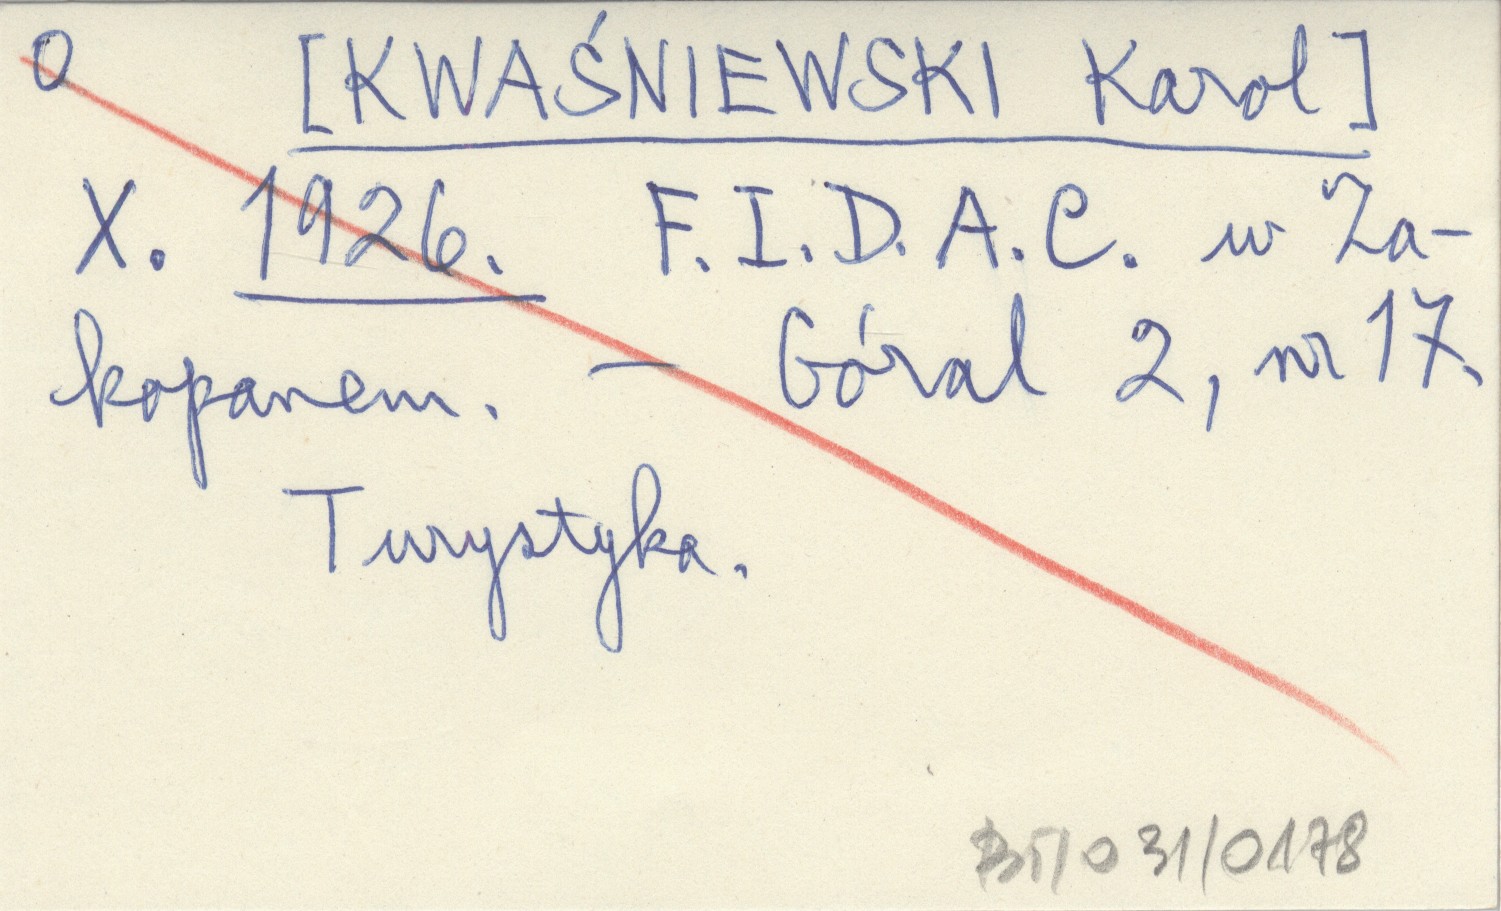 O [KWAŚNIEWSKI Karol]
X. 1926. F.I.D.A.C. w Za-
kopanem. — Góral 2, nr 17.
Turystyka.
BT/031/0178